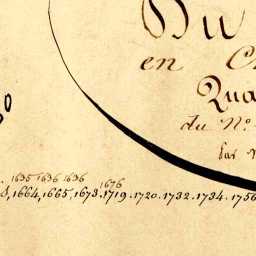 Du
en C
Qua
du N.
1635 1636 1636 1676
8,1664,1665,1673.1719.1720.1732.1734.1756